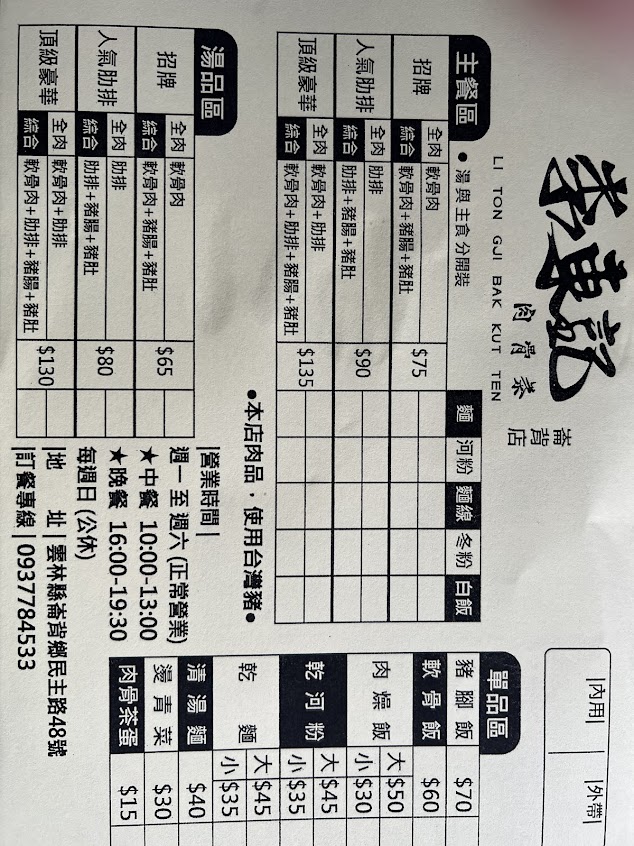 李東記
肉骨茶
崙背店
LI TON GJI BAK KUT TEN
|內用| |外帶|
主餐區
●湯與主食分開裝
麵 河粉 麵線 冬粉 白飯
招牌 全肉 軟骨肉 $75
綜合 軟骨肉+豬腸+豬肚
人氣肋排 全肉 肋排 $90
綜合 肋排+豬腸+豬肚
頂級豪華 全肉 軟骨肉+肋排 $135
綜合 軟骨肉+肋排+豬腸+豬肚
●本店肉品,使用台灣豬●
湯品區
招牌 全肉 軟骨肉 $65
綜合 軟骨肉+豬腸+豬肚
人氣肋排 全肉 肋排 $80
綜合 肋排+豬腸+豬肚
頂級豪華 全肉 軟骨肉+肋排 $130
綜合 軟骨肉+肋排+豬腸+豬肚
|營業時間|
週一至週六(正常營業)
★中餐 10:00-13:00
★晚餐 16:00-19:30
每週日(公休)
|地 址|雲林縣崙背鄉民主路48號
|訂餐專線|0937784533
單品區
豬腳飯 $70
軟骨飯 $60
肉燥飯 大 $50
小 $30
乾河粉 大 $45
小 $35
乾麵 大 $45
小 $35
清湯麵 $40
燙青菜 $30
肉骨茶蛋 $15